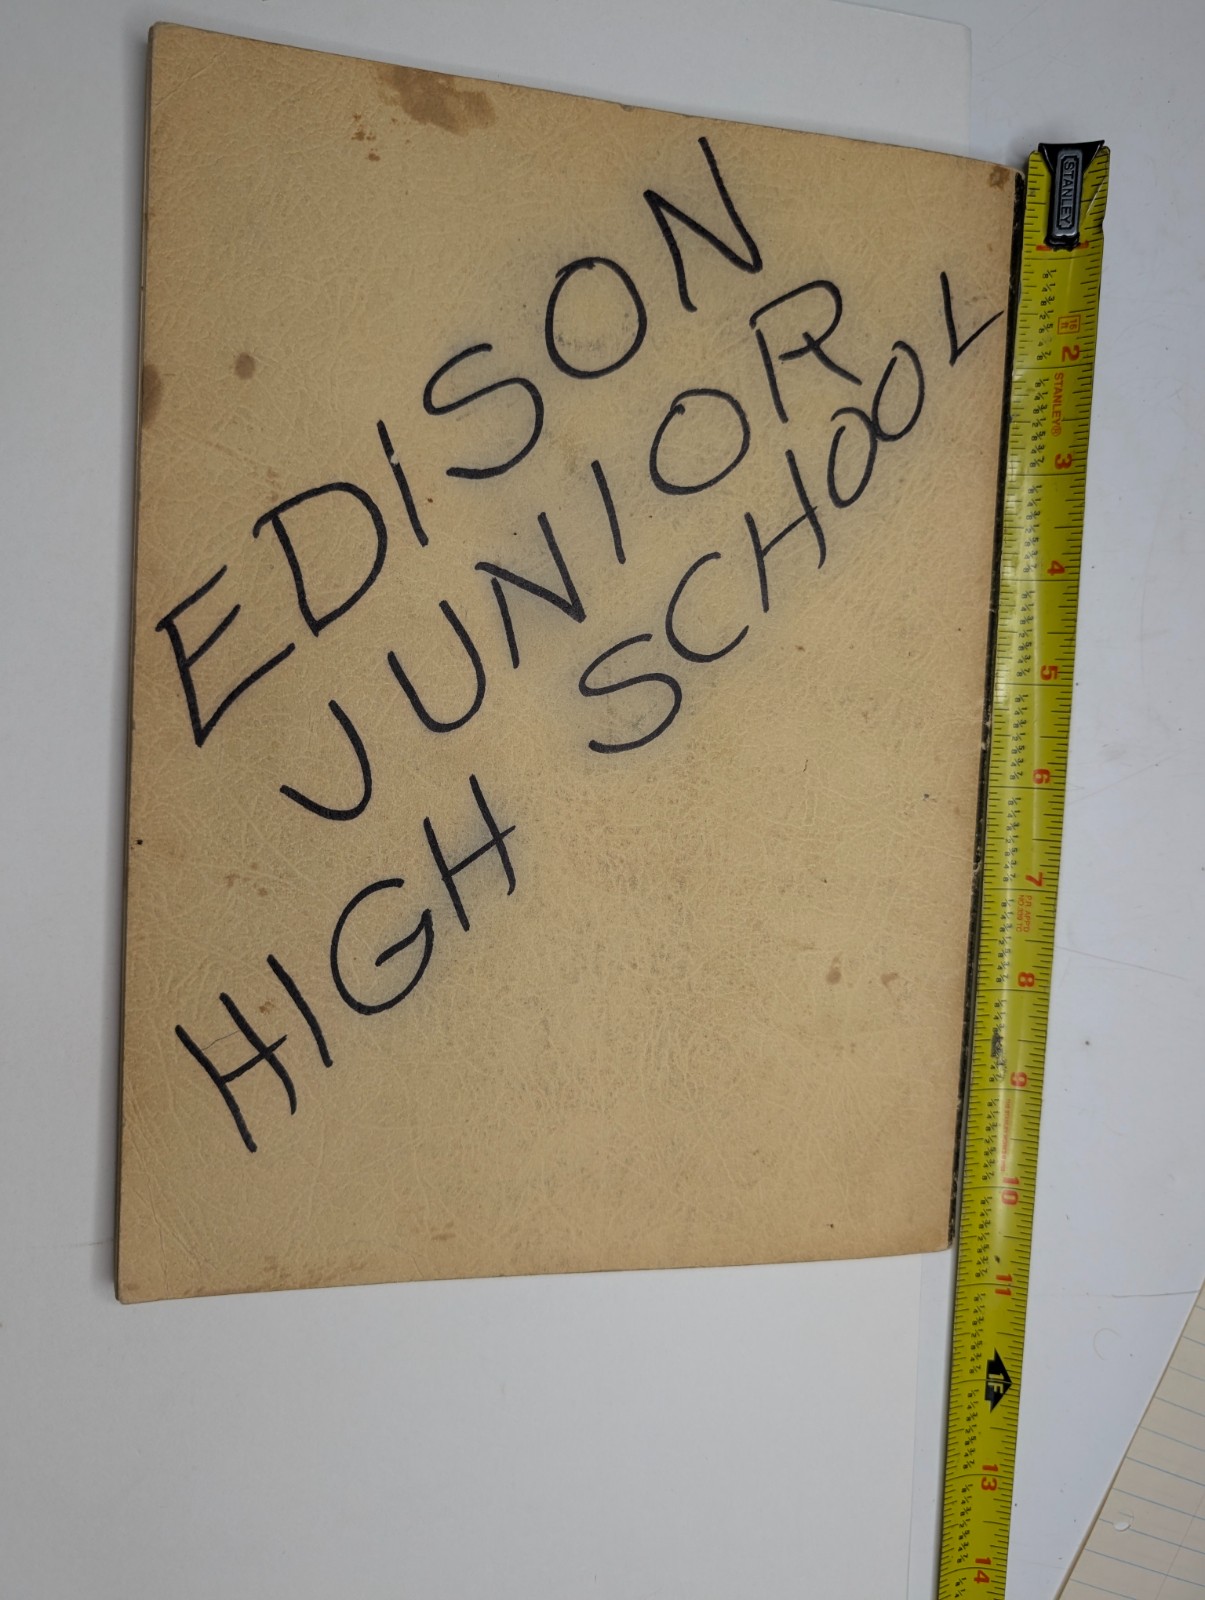 EDISON
JUNIOR
HIGH SCHOOL
STANLEY
1
16 ft
2
STANLEY®
3
4
5
6
7
8
9
10
11
1F
13
14